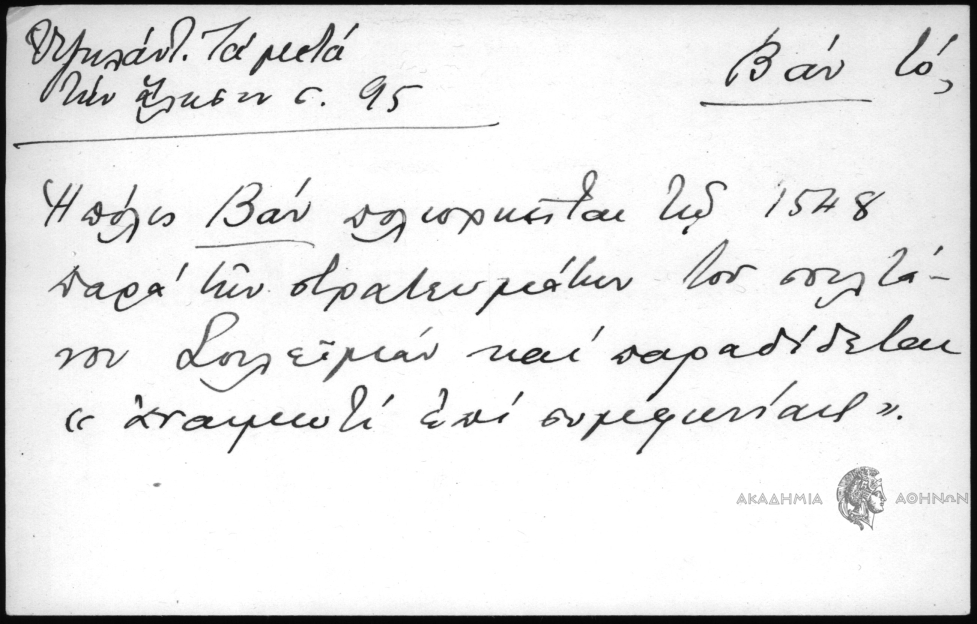 Ὑψηλάντ. Τά μετά
τήν ἅλωσιν σ. 95
Βάν τό,
Ἡ πόλις Βάν πολιορκεῖται τῷ 1548
παρά τῶν στρατευμάτων τοῦ σουλτά-
νου Σουλεϊμάν καί παραδίδεται
« ἀναιμωτί ἐπί συμφωνίαις ».
ΑΚΑΔΗΜΙΑ ΑΘΗΝΩΝ